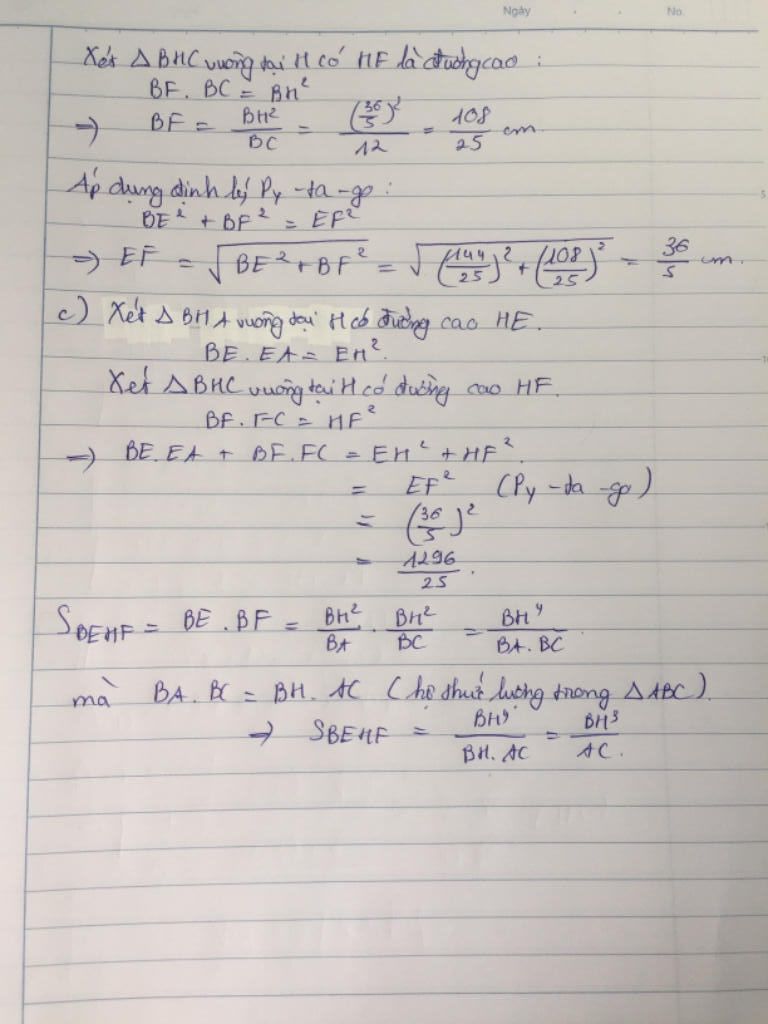 Ngày . . No.
Xét △BHC vuông tại H có HF là đường cao :
BF. BC = BH²
=> BF = BH²/BC = (36/5)²/12 = 108/25 cm.
Áp dụng định lý Py-ta-go :
BE² + BF² = EF²
=> EF = √(BE² + BF²) = √((144/25)² + (108/25)²) = 36/5 cm.
c) Xét △BHA vuông tại H có đường cao HE.
BE. EA = EH².
Xét △BHC vuông tại H có đường cao HF.
BF. FC = HF²
=> BE. EA + BF. FC = EH² + HF².
= EF² (Py-ta-go)
= (36/5)²
= 1296/25.
S_BEHF = BE . BF = BH²/BA . BH²/BC = BH⁴/BA. BC
mà BA. BC = BH. AC (hệ thức lượng trong △ABC).
→ S_BEHF = BH⁴/BH. AC = BH³/AC.